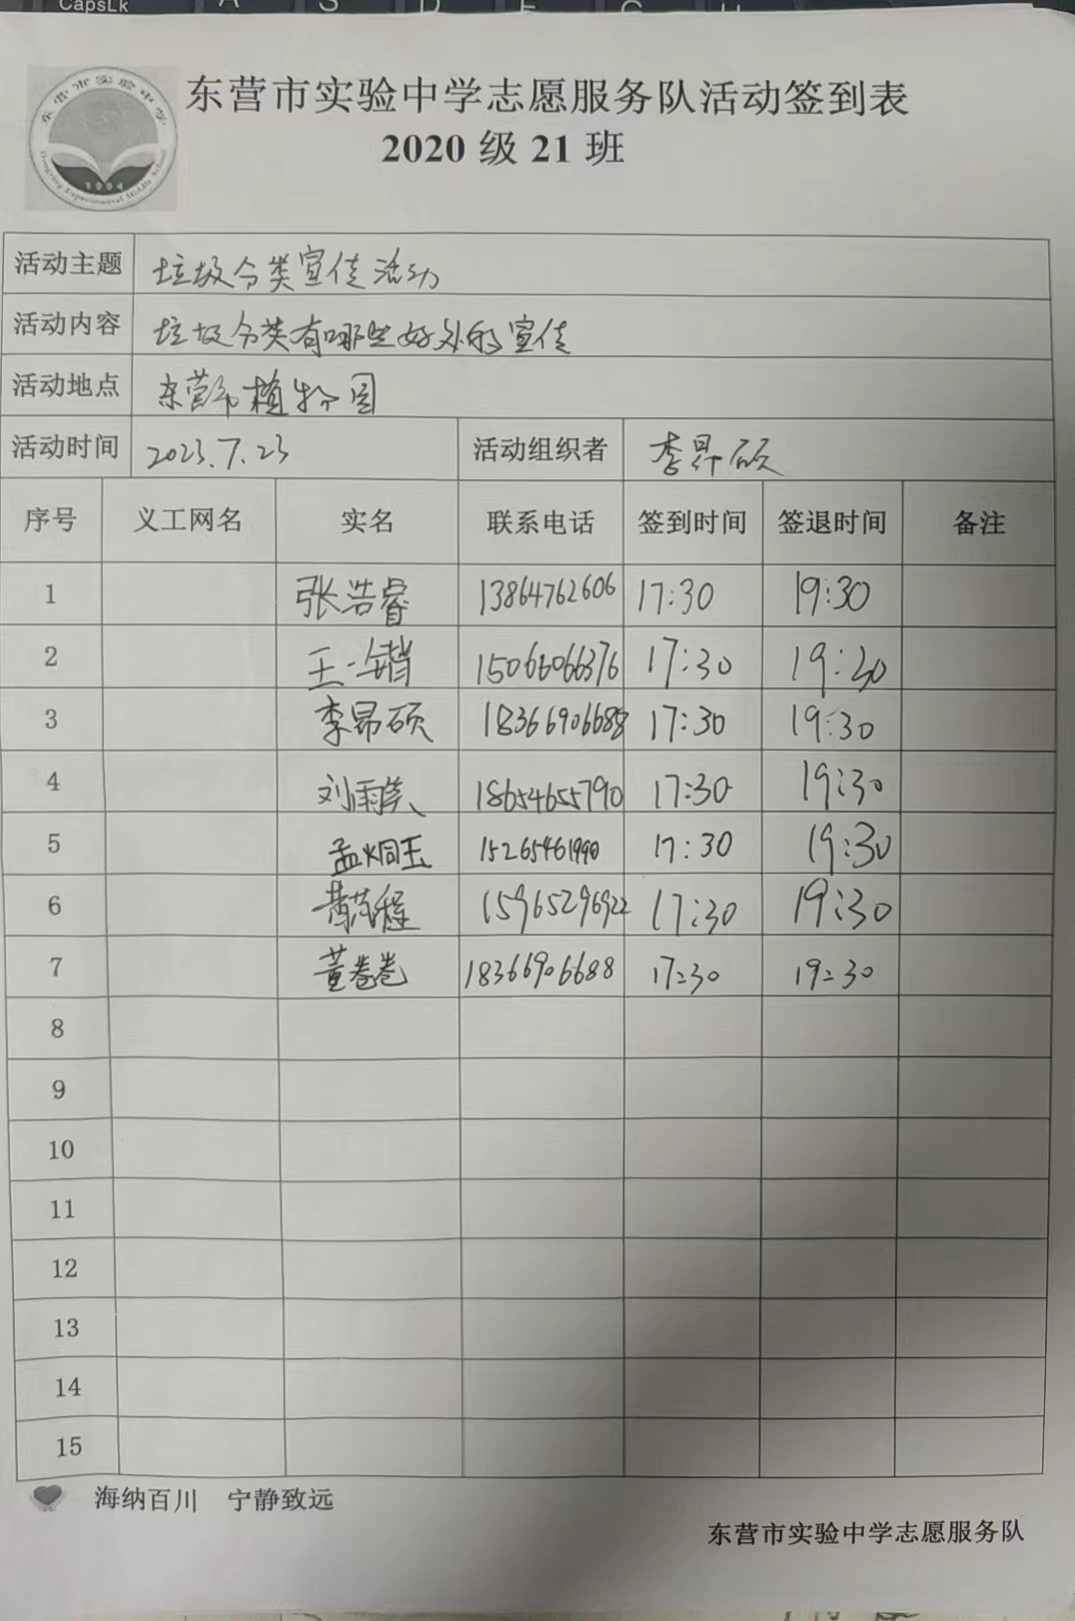 CapsLk A S D F G H
东营市实验中学
Dongying Experimental Middle School
1994
东营市实验中学志愿服务队活动签到表
2020 级 21 班
活动主题 垃圾分类宣传活动
活动内容 垃圾分类有哪些好处的宣传
活动地点 东营市植物园
活动时间 2023.7.23 活动组织者 李昂硕
序号 义工网名 实名 联系电话 签到时间 签退时间 备注
1 张浩睿 13864762606 17:30 19:30
2 王一锴 15066066376 17:30 19:30
3 李昂硕 18366906688 17:30 19:30
4 刘雨 18654655790 17:30 19:30
5 孟炯玉 15265461990 17:30 19:30
6 程 15965296922 17:30 19:30
7 董卷卷 18366906688 17:30 19:30
8
9
10
11
12
13
14
15
海纳百川 宁静致远
东营市实验中学志愿服务队